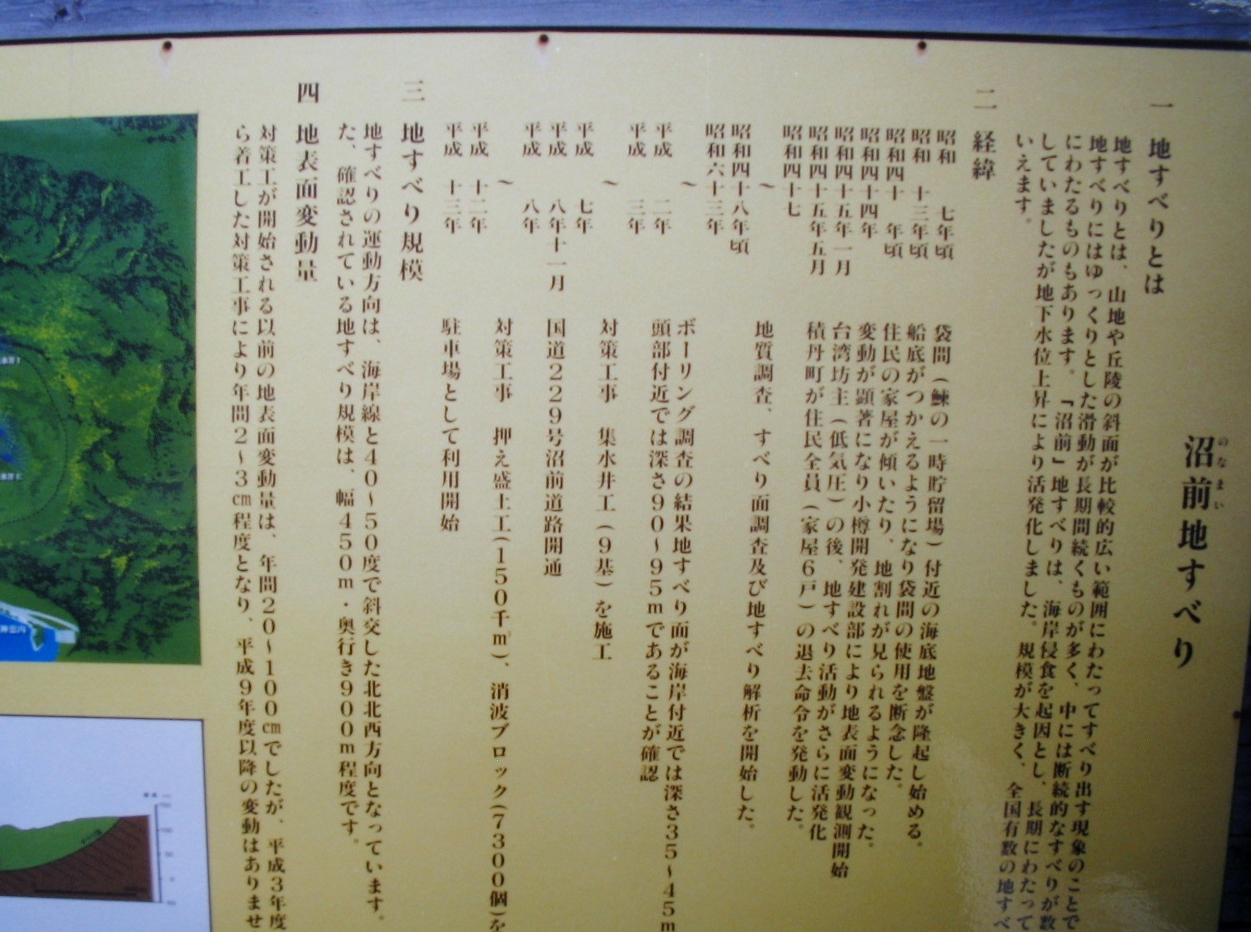 沼前地すべり
のなまい
一 地すべりとは
地すべりとは、山地や丘陵の斜面が比較的広い範囲にわたってすべり出す現象のことで
地すべりにはゆっくりとした滑動が長期間続くものが多く、中には断続的なすべりが数
にわたるものもあります。「沼前」地すべりは、海岸侵食を起因とし、長期にわたって
していましたが地下水位上昇により活発化しました。規模が大きく、全国有数の地すべ
いえます。
二 経緯
昭和 七年頃 袋間(鰊の一時貯留場)付近の海底地盤が隆起し始める。
昭和 十三年頃 船底がつかえるようになり袋間の使用を断念した。
昭和四十 年頃 住民の家屋が傾いたり、地割れが見られるようになった。
昭和四十四年 変動が顕著になり小樽開発建設部により地表面変動観測開始
昭和四十五年一月 台湾坊主(低気圧)の後、地すべり活動がさらに活発化
昭和四十五年五月 積丹町が住民全員(家屋6戸)の退去命令を発動した。
昭和四十七
~ 地質調査、すべり面調査及び地すべり解析を開始した。
昭和四十八年頃
~ ボーリング調査の結果地すべり面が海岸付近では深さ35~45m
昭和六十三年 頭部付近では深さ90~95mであることが確認
平成 二年
平成 三年
~ 対策工事 集水井工(9基)を施工
平成 七年
平成 八年十一月 国道229号沼前道路開通
平成 八年
~ 対策工事 押え盛土工(150千㎥)、消波ブロック(7300個)を
平成 十二年
平成 十三年 駐車場として利用開始
三 地すべり規模
地すべりの運動方向は、海岸線と40~50度で斜交した北北西方向となっています。
た、確認されている地すべり規模は、幅450m・奥行き900m程度です。
四 地表面変動量
対策工が開始される以前の地表面変動量は、年間20~100㎝でしたが、平成3年度
ら着工した対策工事により年間2~3㎝程度となり、平成9年度以降の変動はありませ